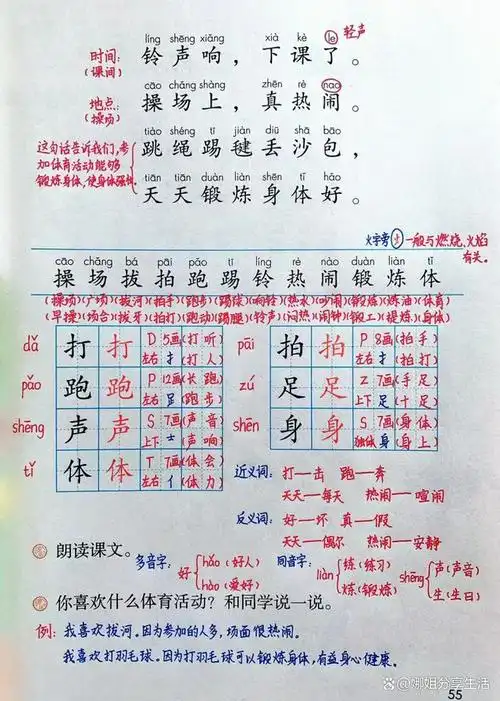 líng shēng xiǎng xià kè le 轻声
时间: 铃声响，下课了。
(课间)
cāo chǎng shàng zhēn rè nao
地点: 操场上，真热闹。
(操场)
tiào shéng tī jiàn diū shā bāo
跳绳踢毽丢沙包，
这句话告诉我们,参
加体育活动能够
锻炼身体,使身体强壮.
tiān tiān duàn liàn shēn tǐ hǎo
天天锻炼身体好。
火字旁(火)一般与燃烧、火焰
有关。
cāo chǎng bá pāi pǎo tī líng rè nào duàn liàn tǐ
操场拔拍跑踢铃热闹锻炼体
(操场)(广场)(拔河)(拍手)(跑步)(踢球)(响铃)(热水)(吵闹)(锻炼)(炼油)(体育)
(早操)(场合)(拔牙)(拍打)(跑动)(踢腿)(铃声)(闷热)(闹钟)(锻工)(提炼)(身体)
dǎ 打 打 D 5画(打听)
左右 扌(打人)
pǎo 跑 跑 P 12画(长跑)
左右 足(跑步)
shēng 声 声 S 7画(声音)
上下 士(声响)
tǐ 体 体 T 7画(体会)
左右 亻(体力)
pāi 拍 拍 P 8画(拍手)
左右 扌(拍打)
zú 足 足 Z 7画(手足)
上下 足(十足)
shēn 身 身 S 7画(身体)
独体 身(身上)
近义词: 打—击 跑—奔
天天—每天 热闹—喧闹
反义词: 好—坏 真—假
天天—偶尔 热闹—安静
朗读课文。
多音字: 好 hǎo (好人)
hào (爱好)
同音字: liàn 练(练习)
炼(锻炼)
shēng 声(声音)
生(生日)
你喜欢什么体育活动？和同学说一说。
例: 我喜欢拔河。因为参加的人多,场面很热闹。
我喜欢打羽毛球。因为打羽毛球可以锻炼身体,有益身心健康。
@娜姐分享生活
55